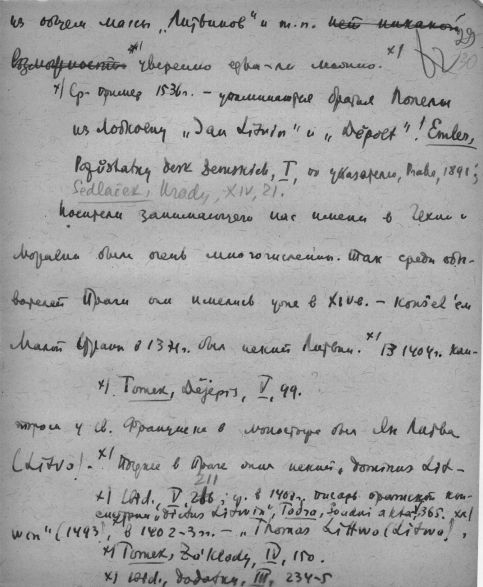 из общем массы „Литвинов" и т.п. нет никакой
возможности x) уверенно едва-ли можно. x)
29
30
x) Ср. пример 1536г. — упоминаются братья Попелы
из Лобковиц „Jan Litvin" и „Děpolt"! Emler,
Pozůstatky desk zemských, I, по указателю, Praha, 1891;
Sedláček, Hrady, XIV, 21.
Носители занимающего нас имени в Чехии и
Моравии были очень многочисленны. Так среди обы-
вателей Праги они имелись уже в XIV в. — Konšel'ем
Малой Страны в 1371г. был некий Литвин. x) В 1404г. кан-
x) Tomek, Dějepis, V, 99.
тором у св. Франциска в монастыре был Ян Литва
(Litva)! x) Позже в Праге жил некий „dominus Lit-
211
x) Ibid., V, в 1407г. писарь пражской кон-
систории „dictus Litwin", Tadra, Soudní akta, 365. xx)
win" (1493), в 1402-3гг. — „Thomas Littwa (Litwa),
x) Tomek, Základy, IV, 150.
x) Ibid., Dodatky, III, 234-5